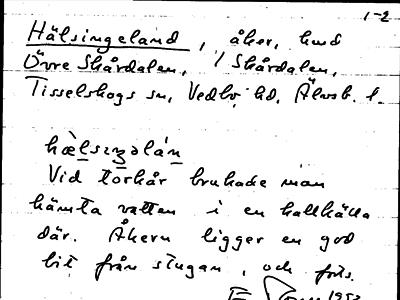 1-2
Hälsingeland, åker, hmd
Övre Skårdalen, / Skårdalen,
Tisselskogs sn, Vedbo hd, Älvsb. l.
hæ̀lsıŋəlán
Vid torkår brukade man
hämta vatten i en kallkälla
där. Åkern ligger en god
bit från stugan, och
1953